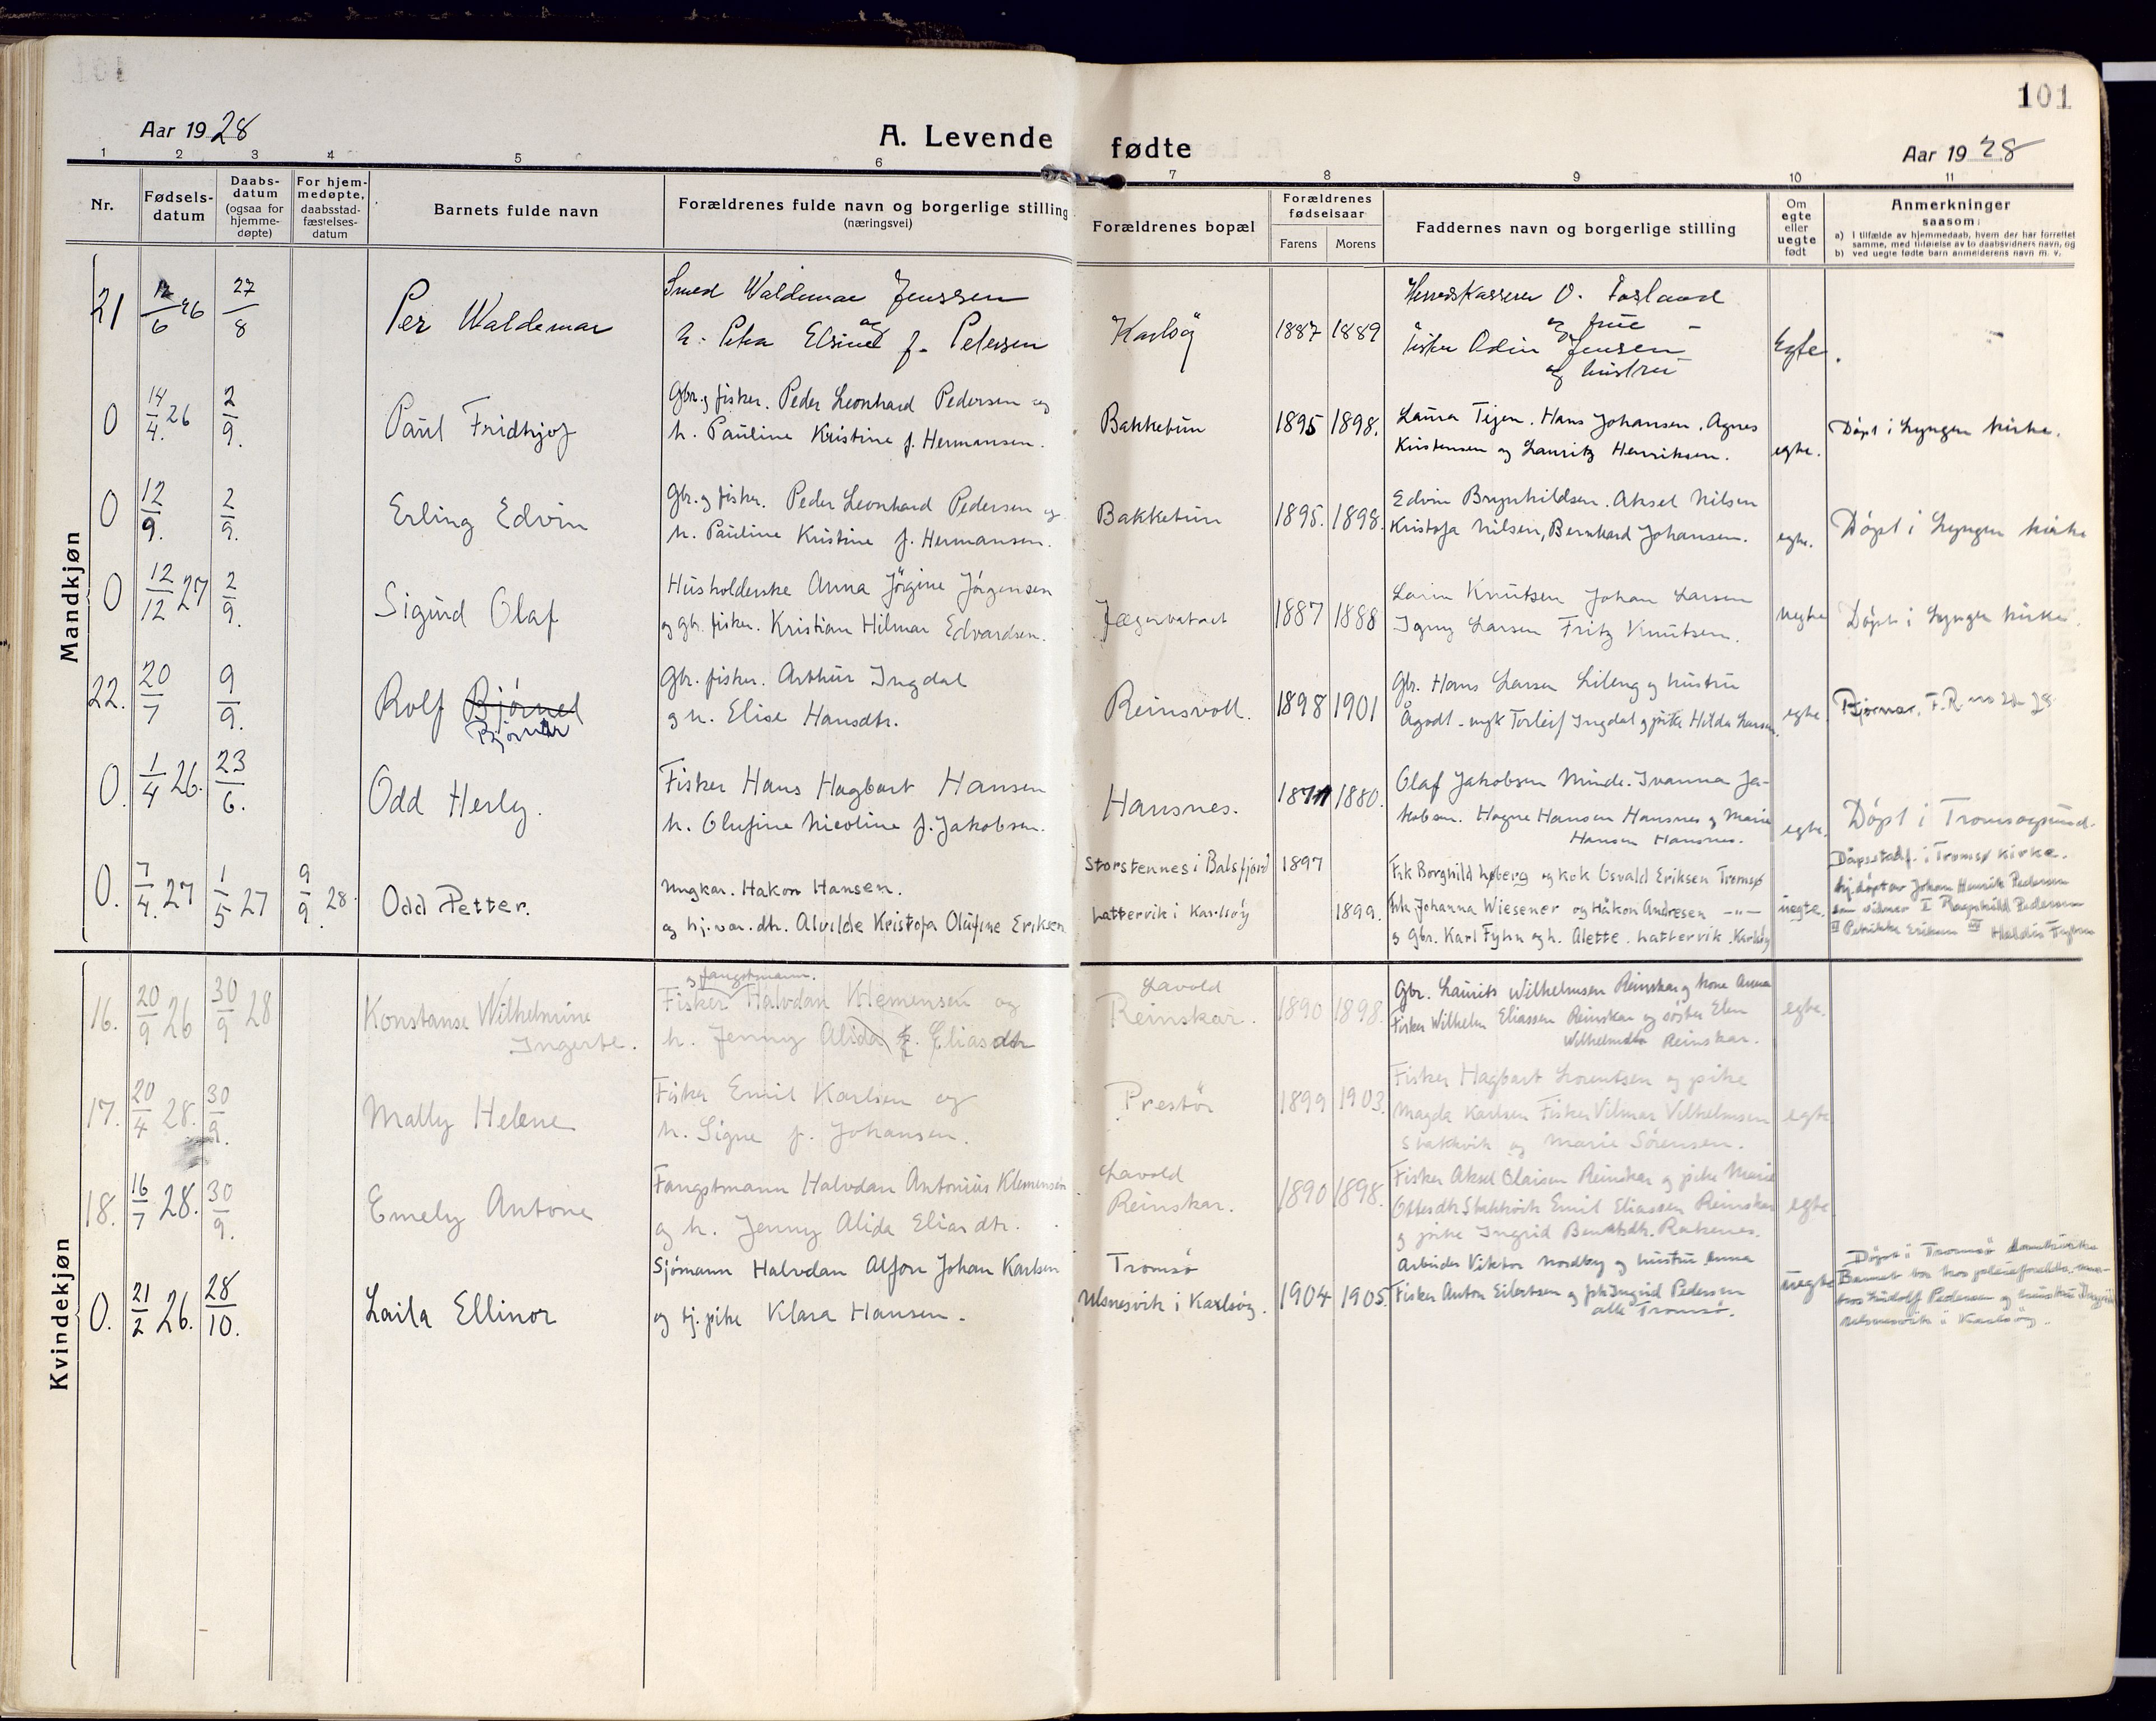 101
Aar 1928
A. Levende fødte
Aar 1928
1 2 3 4 5 6 7 8 9 10 11
Nr.
Fødsels-
datum
Daabs-
datum
(ogsaa for
hjemme-
døpte)
For hjem-
medøpte,
daabsstad-
fæstelses-
datum
Barnets fulde navn
Forældrenes fulde navn og borgerlige stilling
(næringsvei)
Forældrenes bopæl
Forældrenes
fødselsaar
Farens Morens
Faddernes navn og borgerlige stilling
Om
egte
eller
uegte
født
Anmerkninger
saasom:
a) I tilfælde av hjemmedaab, hvem der har forrettet
samme, med tilføielse av to daabsvidners navn, og
b) ved uegte fødte barn anmelderens navn m. v.
Mandkjøn
21 12/6 26 27/8 Per Waldemar
Smed Waldemar Jenssen
og
h. Petra Elsine f. Petersen
Karlsøy 1887 1889
Herredskasserer O. Fosland
og frue
Fisker Odin Jensen
og hustru
Egte.
0 14/4. 26 2/9. Paul Fridhjof
Gbr. og fisker. Peder Leonhard Pedersen og
h. Pauline Kristine f. Hermansen.
Bakketun 1895 1898.
Laura Tejen. Hans Johansen. Agnes
Kristensen og Lauritz Henriksen.
egte.
Døpt i Lyngen kirke.
0 12/9. 2/9. Erling Edvin
Gbr. og fisker. Peder Leonhard Pedersen og
h. Pauline Kristine f. Hermansen.
Bakketun 1895. 1898.
Edvin Brynhildsen. Aksel Nilsen
Kristofa Nilsen, Bernhard Johansen.
egte.
Døpt i Lyngen kirke
0 12/12 27 2/9. Sigurd Olaf
Husholderske Anna Jørgine Jørgensen
og gbr. fisker. Kristian Hilmar Edvardsen.
Jægervatnet 1887 1888
Larin Knutsen Johan Larsen
Larsen Fritz Knutsen.
uegte
Døpt i Lyngen kirke.
22. 20/7 9/9. Rolf Bjørnel
Bjørnar
Gbr. fisker. Arthur Ingdal
og h. Elise Hansdtr.
Reinsvoll. 1898 1901
Gbr. Hans Larsen Lileng og hustru
Ågodt - ungk Torleif Ingdal og pike Hilda Larsen.
egte
Bjørnar, F.R.
0. 1/4 26. 23/6. Odd Herly.
Fisker Hans Hagbart Hansen
h. Olufine Nicoline f. Jakobsen.
Hansnes. 1871 1880.
Olaf Jakobsen Minde. Ivanna Ja-
kobsen. Hagne Hansen Hansnes og Marie
Hansen Hansnes.
egte.
Døpt i Tromsøysund.
0. 7/4. 27 1/5 27 9/9. 28. Odd Petter.
Ungkar. Hakon Hansen.
og hj. var. dtr. Alvilde Kristofa Olufine Eriksen
Storstennes i Balsfjord 1897
Lattervik i Karlsøy 1899.
Frk Borghild Høberg og kok Osvald Eriksen Tromsø
Frk Johanna Wiesener og Håkon Andresen -"-
og Gbr. Karl Fyhn og h. Alette. Lattervik. Karlsøy
uegte.
Dåpsstadf. i Tromsø kirke.
hj. døpt av Johan Henrik Pedersen
som vidner I Ragnhild Pedersen
II Petrikke Eriksen III Haldis Fyhn
Kvindekjøn
16. 20/9 26 30/9 28 Konstanse Wilhelmine
Ingerte.
og fangstmann.
Fisker Halvdan Klemensen og
h. Jenny Alida f. Eliasdtr
Lavold
Reinskar. 1890 1898.
Gbr. Laurits Wilhelmsen Reinskar og kone Anna
Fisker Wilhelm Eliassen Reinskar og søster Elen
Wilhelmdtr Reinskar.
egte.
17. 20/4 28. 30/9. Mally Helene
Fisker Emil Karlsen og
h. Signe f. Johansen.
Prestør 1899 1903.
Fisker Hagbart Lorentsen og pike
Magda Karlsen Fisker Vilmar Vilhelmsen
Stakkvik og Marie Sørensen.
egte
18. 16/7 28. 30/9. Emely Antone
Fangstmann Halvdan Antonius Klemensen
og h. Jenny Alida Eliasdtr.
Lavold
Reinskar. 1890 1898.
Fisker Aksel Olaisen Reinskar og pike Marie
Ottesdtr Stakkvik Emil Eliassen Reinskar
og pike Ingrid Berntsdtr. Rakenes.
egte
0. 21/2 26. 28/10. Laila Ellinor
Sjømann Halvdan Alfon Johan Karlsen
og tj. pike Klara Hansen.
Tromsø
Ulsnesvik i Karlsøy. 1904 1905.
Arbeider Viktor Nordby og hustru Anna
Fisker Anton Eilertsen og frk Ingrid Pedersen
alle Tromsø.
uegte
Døpt i Tromsø domkirke
Barnet bor hos pleieforeldre,
hos Ludolf Pedersen og hustru Dagny
Ulsnesvik i Karlsøy.